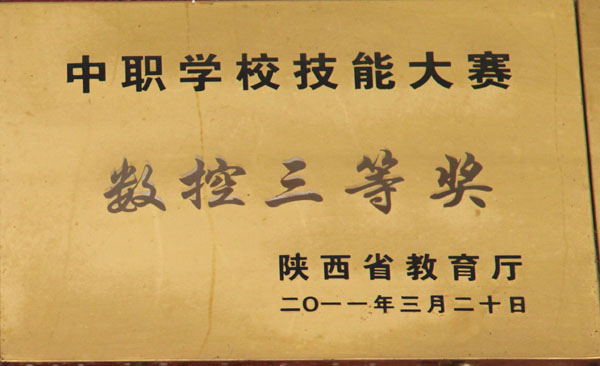 中职学校技能大赛
数控三等奖
陕西省教育厅
二〇一一年三月二十日